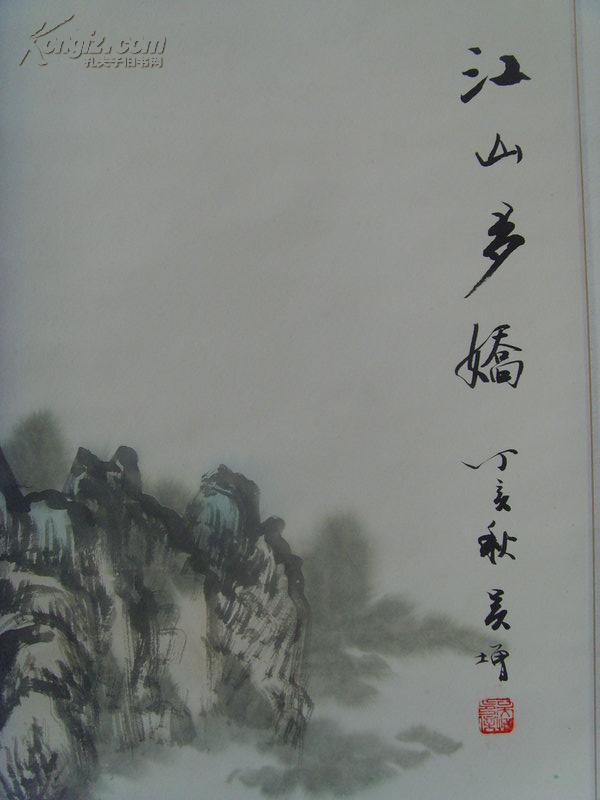 Kongfz.com
孔夫子旧书网
江山多嬌
丁亥秋 吴增